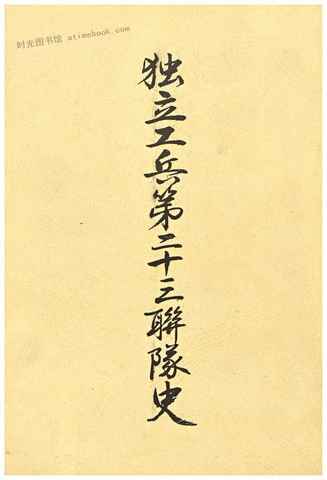 时光图书馆 atimebook.com
独立工兵第二十三聯隊史